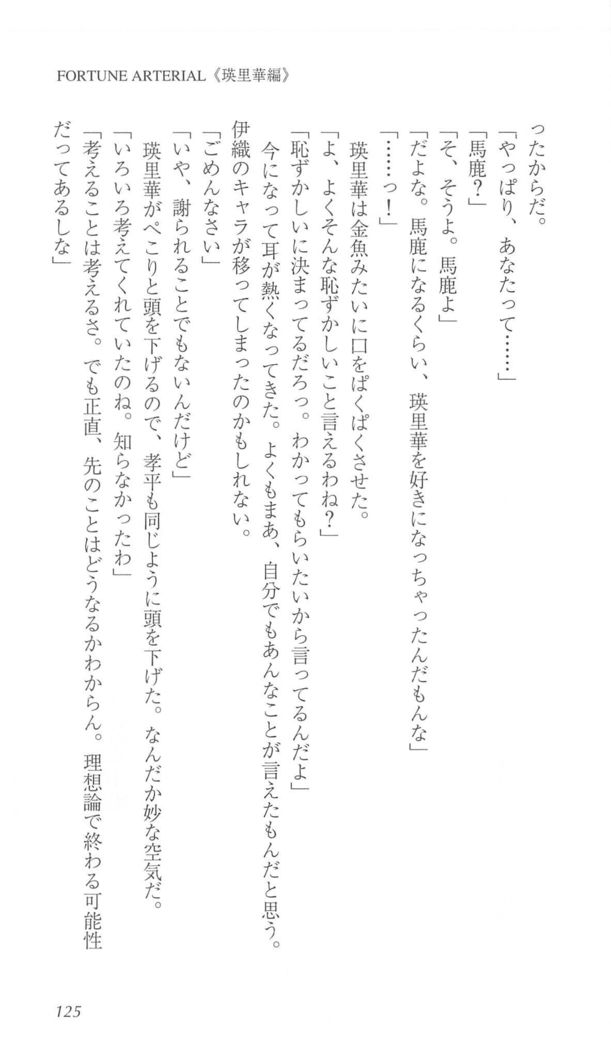 FORTUNE ARTERIAL《瑛里華編》
ったからだ。
「やっぱり、あなたって……」
「馬鹿？」
「そ、そうよ。馬鹿よ」
「だよな。馬鹿になるくらい、瑛里華を好きになっちゃったんだもんな」
「……っ！」
　瑛里華は金魚みたいに口をぱくぱくさせた。
「よ、よくそんな恥ずかしいこと言えるわね？」
「恥ずかしいに決まってるだろっ。わかってもらいたいから言ってるんだよ」
　今になって耳が熱くなってきた。よくもまあ、自分でもあんなことが言えたもんだと思う。
伊織のキャラが移ってしまったのかもしれない。
「ごめんなさい」
「いや、謝られることでもないんだけど」
　瑛里華がぺこりと頭を下げるので、孝平も同じように頭を下げた。なんだか妙な空気だ。
「いろいろ考えてくれていたのね。知らなかったわ」
「考えることは考えるさ。でも正直、先のことはどうなるかわからん。理想論で終わる可能性
だってあるしな」
125